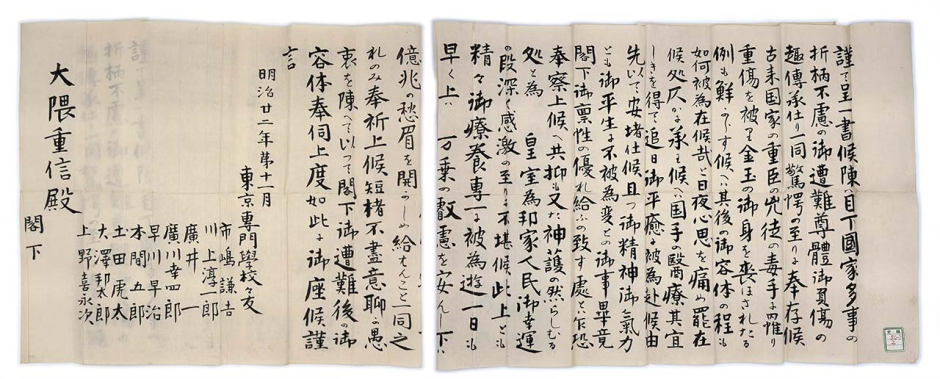 謹て呈一書候陳ハ目下國家多事の
折柄不慮の御遭難尊體御負傷の
趣傳承仕り一同驚愕の至りよ奉存候
古来国家の重臣の兇徒の毒手よ罹り
重傷を被り金玉の御身を喪はされたる
例も鮮からす候へハ其後の御容体の程も
如何被為在候哉と日夜心思を痛め罷在
候処仄かよ承り候へハ国手の醫療其宜
しきを得て追日御平癒よ被為赴候由
先以て安堵仕候且つ御精神御氣力
とも御平生よ不被為変との御事畢竟
閣下御禀性の優れ給ふの致す處と乍恐
奉察上候へ共抑も又た神護の然らしむる
処と為 皇室為邦家人民御幸運
の段深く感激の至りよ不堪候此上とも
精々御療養専一よ被為遊一日も
早く上ハ万乗の叡慮を安んし下ハ
億兆の愁眉を開かしめ給はんこと一同之
れのみ奉祈上候短楮不盡意聊か愚
衷を陳へて以つて閣下御遭難後の御
容体奉伺上度如此よ御座候謹
言
明治廿二年第十一月
東京専門學校々友
市嶋謙吉
川上淳一郎
廣井一
廣川幸四郎
本間五郎
早川早治
土田虎太
大澤邦太郎
上野喜永次
大隈重信殿
閣下